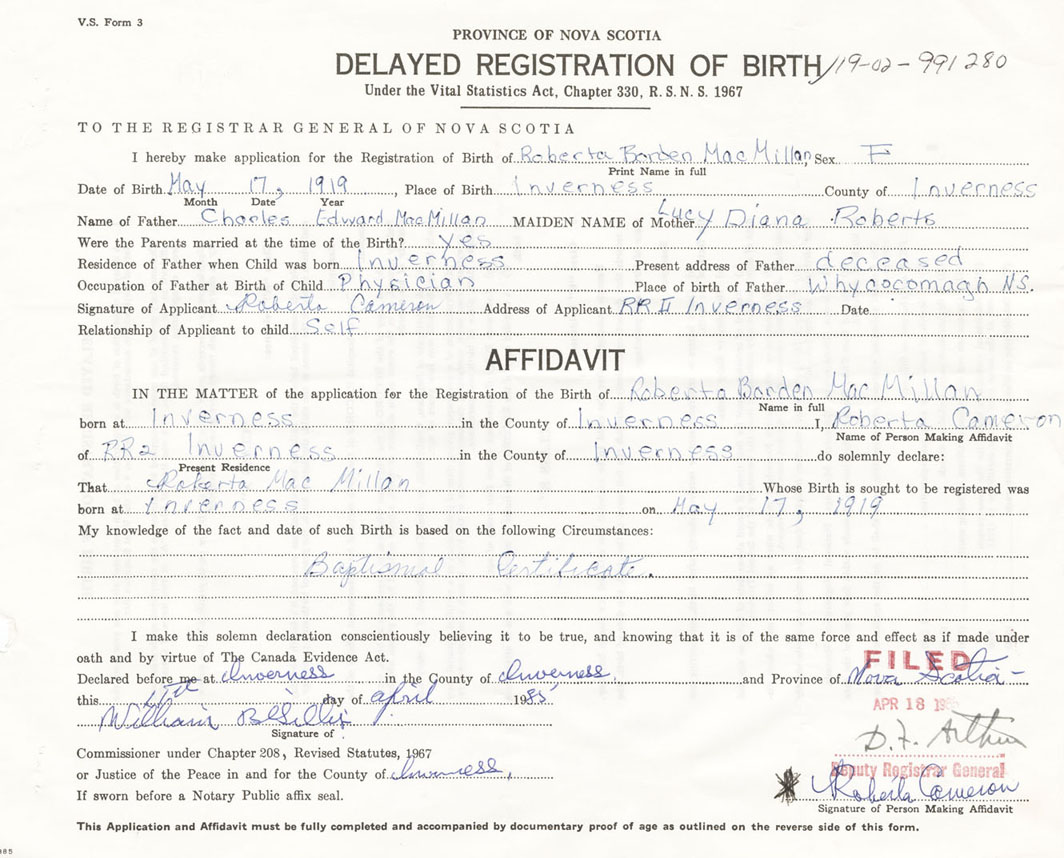 V.S. Form 3
PROVINCE OF NOVA SCOTIA
DELAYED REGISTRATION OF BIRTH/19-02-991280
Under the Vital Statistics Act, Chapter 330, R.S.N.S. 1967
TO THE REGISTRAR GENERAL OF NOVA SCOTIA
I hereby make application for the Registration of Birth of Roberta Borden MacMillan Sex F
Print Name in full
Date of Birth May 17, 1919, Place of Birth Inverness County of Inverness
Month Date Year
Name of Father Charles Edward MacMillan MAIDEN NAME of Mother Lucy Diana Roberts
Were the Parents married at the time of the Birth? yes
Residence of Father when Child was born Inverness Present address of Father deceased
Occupation of Father at Birth of Child Physician Place of birth of Father Whycocomagh N.S.
Signature of Applicant Roberta Cameron Address of Applicant RR II Inverness Date
Relationship of Applicant to child Self
AFFIDAVIT
IN THE MATTER of the application for the Registration of the Birth of Roberta Borden MacMillan
Name in full
born at Inverness in the County of Inverness I, Roberta Cameron
Name of Person Making Affidavit
of RR2 Inverness in the County of Inverness do solemnly declare:
Present Residence
That Roberta Mac Millan Whose Birth is sought to be registered was
born at Inverness on May 17, 1919
My knowledge of the fact and date of such Birth is based on the following Circumstances:
Baptismal Certificate.
I make this solemn declaration conscientiously believing it to be true, and knowing that it is of the same force and effect as if made under
oath and by virtue of The Canada Evidence Act.
FILED
Declared before me at Inverness in the County of Inverness and Province of Nova Scotia
this day of april 1985
APR 18
William
Signature of
D.F. Arthur
Commissioner under Chapter 208, Revised Statutes, 1967
Deputy Registrar General
or Justice of the Peace in and for the County of Inverness,
Roberta Cameron
If sworn before a Notary Public affix seal.
Signature of Person Making Affidavit
This Application and Affidavit must be fully completed and accompanied by documentary proof of age as outlined on the reverse side of this form.